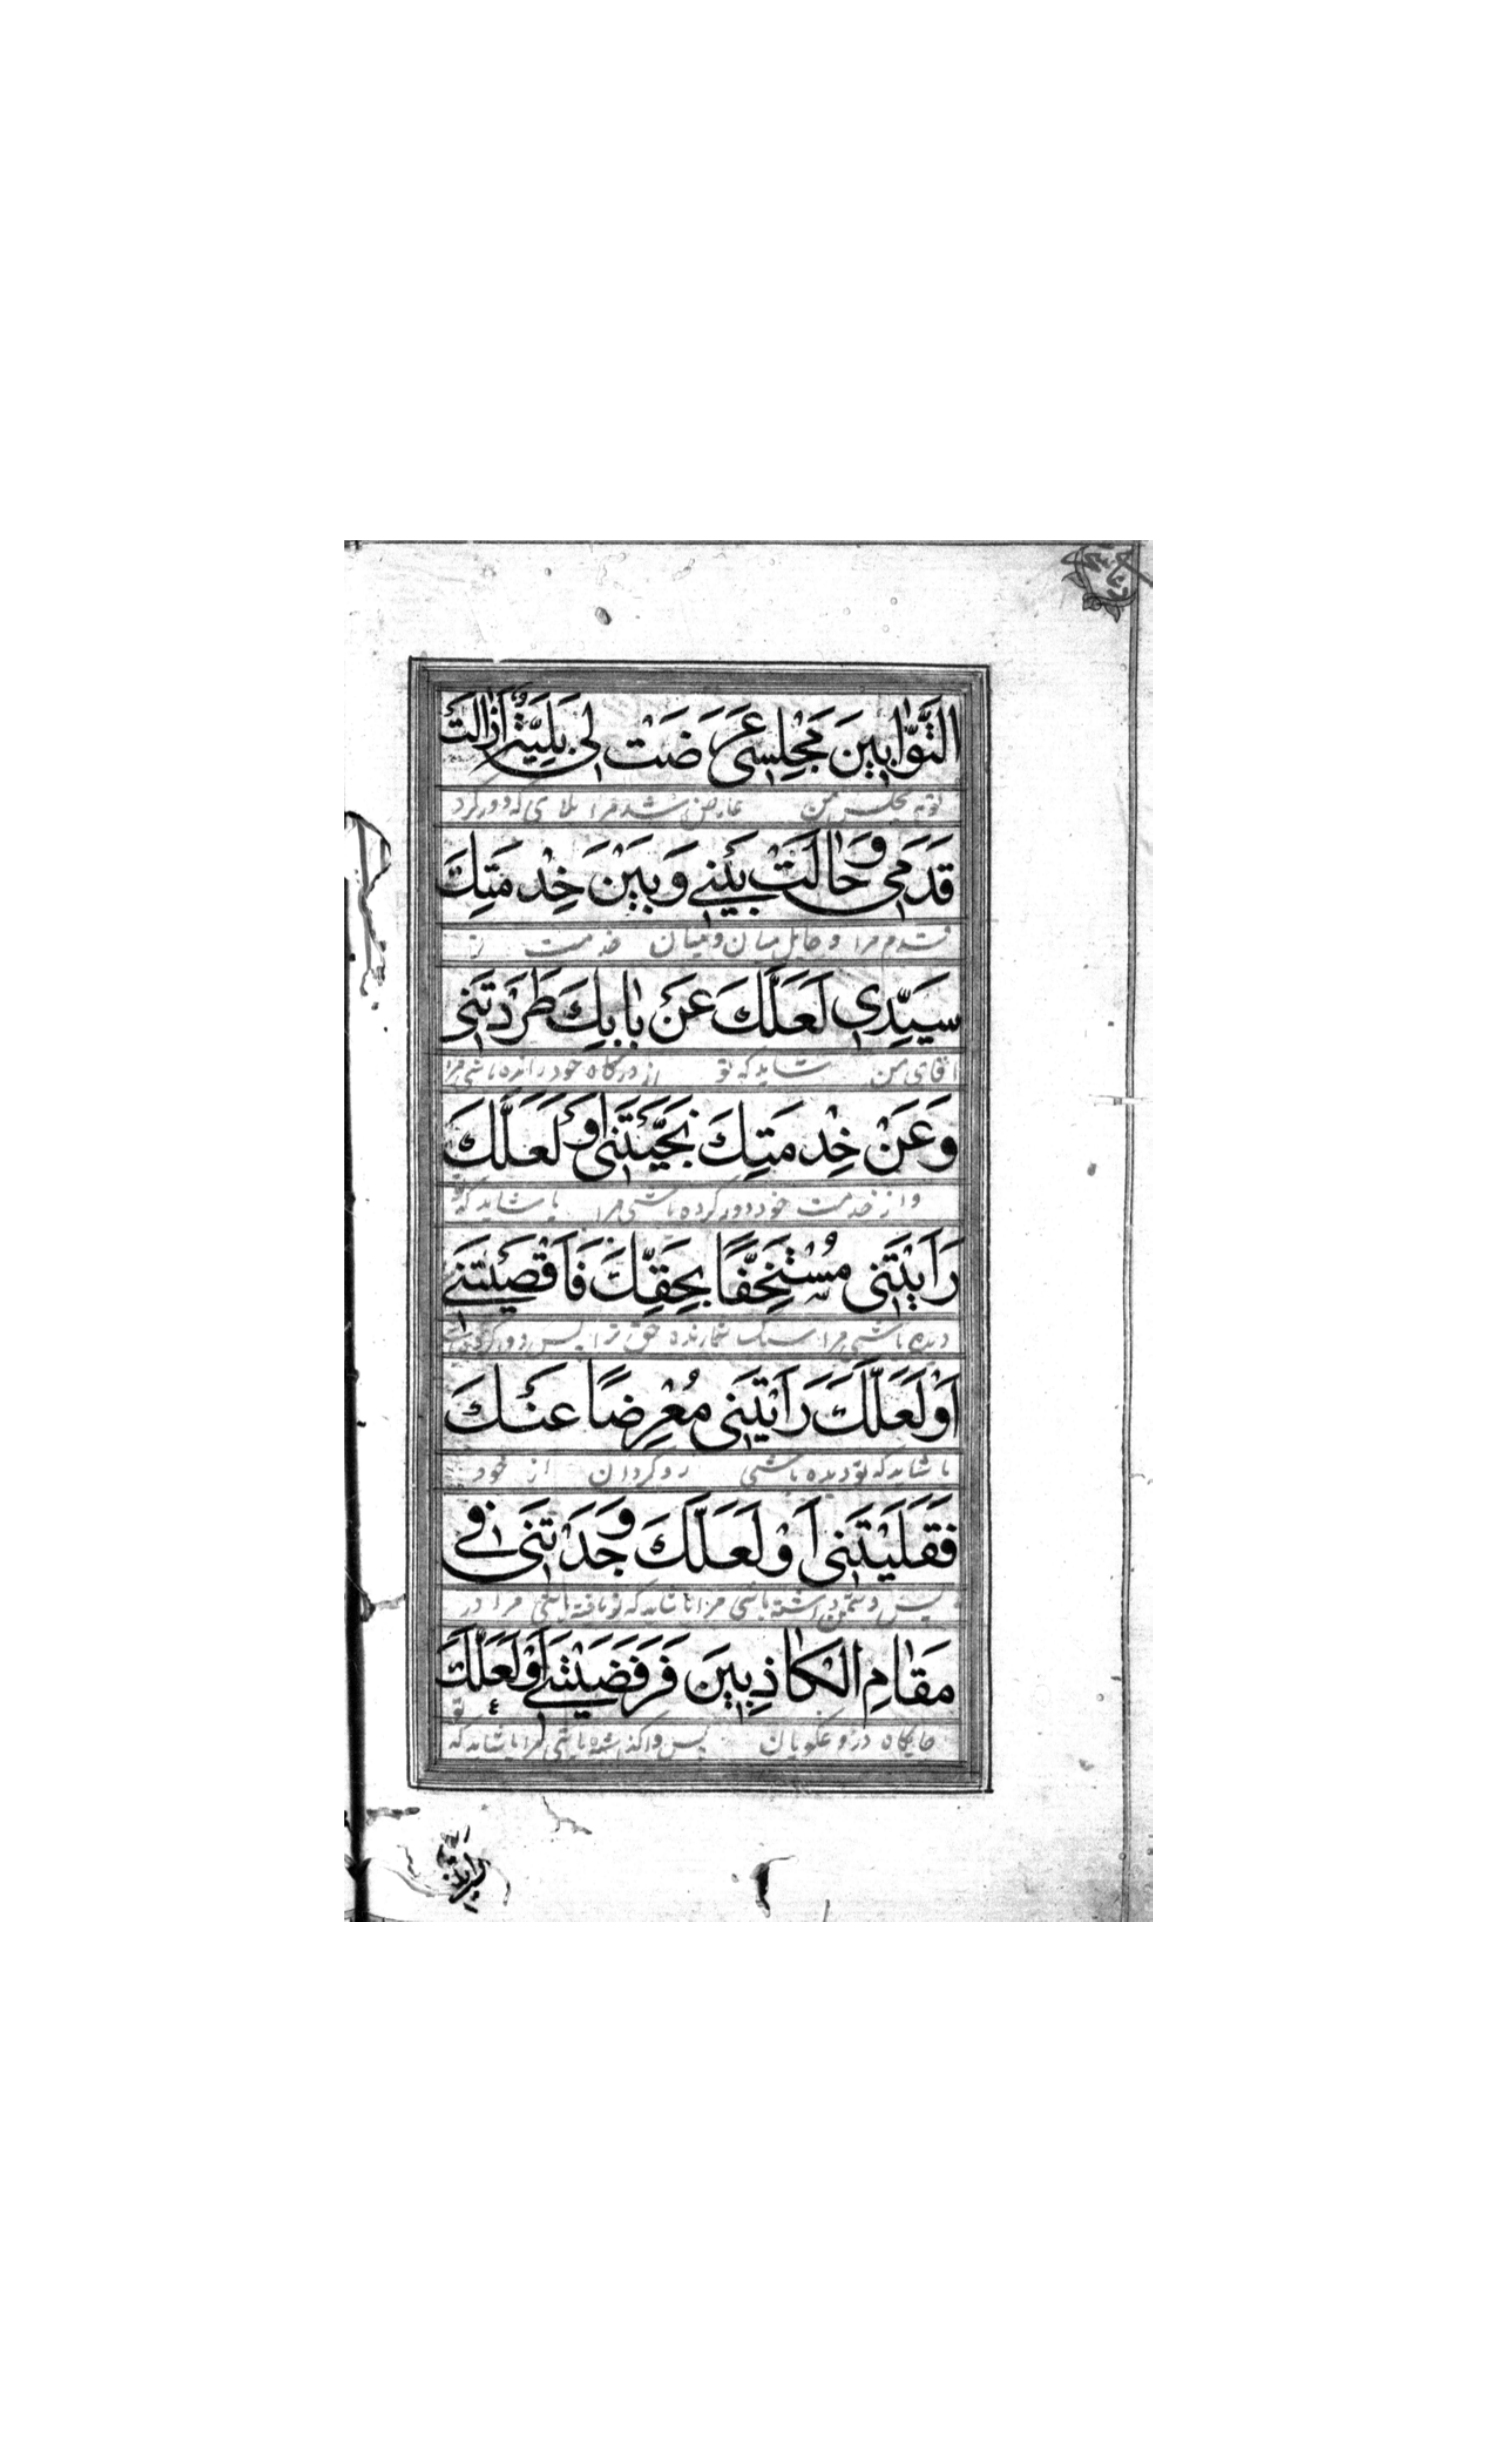 التَّوَّابينَ مَجْلِسي عَرَضَتْ لي بَلِيَّةٌ اَزالَتْ
توبه مجلس من عارض شد مرا بلای که دور کرد
قَدَمي وَحالَتْ بَيْني وَبَيْنَ خِدْمَتِكَ
قدم مرا و حایل میان و میان خدمت
سَيِّدي لَعَلَّكَ عَنْ بابِكَ طَرَدْتَني
اقای من شاید که تو از درگاه خود رانده باشی مرا
وَعَنْ خِدْمَتِكَ نَحَّيْتَني اَوْ لَعَلَّكَ
و از خدمت خود دور کرده باشی مرا یا شاید که تو
رَاَيْتَني مُسْتَخِفًّا بِحَقِّكَ فَاَقْصَيْتَني
دیده باشی مرا سبک شمارنده حق ترا پس دور کرده
اَوْ لَعَلَّكَ رَاَيْتَني مُعْرِضًا عَنْكَ
یا شاید که تو دیده باشی رو گردان از خود
فَقَلَيْتَني اَوْ لَعَلَّكَ وَجَدْتَني في
پس دشمن داشته باشی مرا یا شاید که تو یافته باشی مرا در
مَقامِ الْكاذِبينَ فَرَفَضْيتَني اَوْ لَعَلَّكَ
جایگاه دروغگویان پس واگذاشته باشی مرا یا شاید که تو
رایتنی